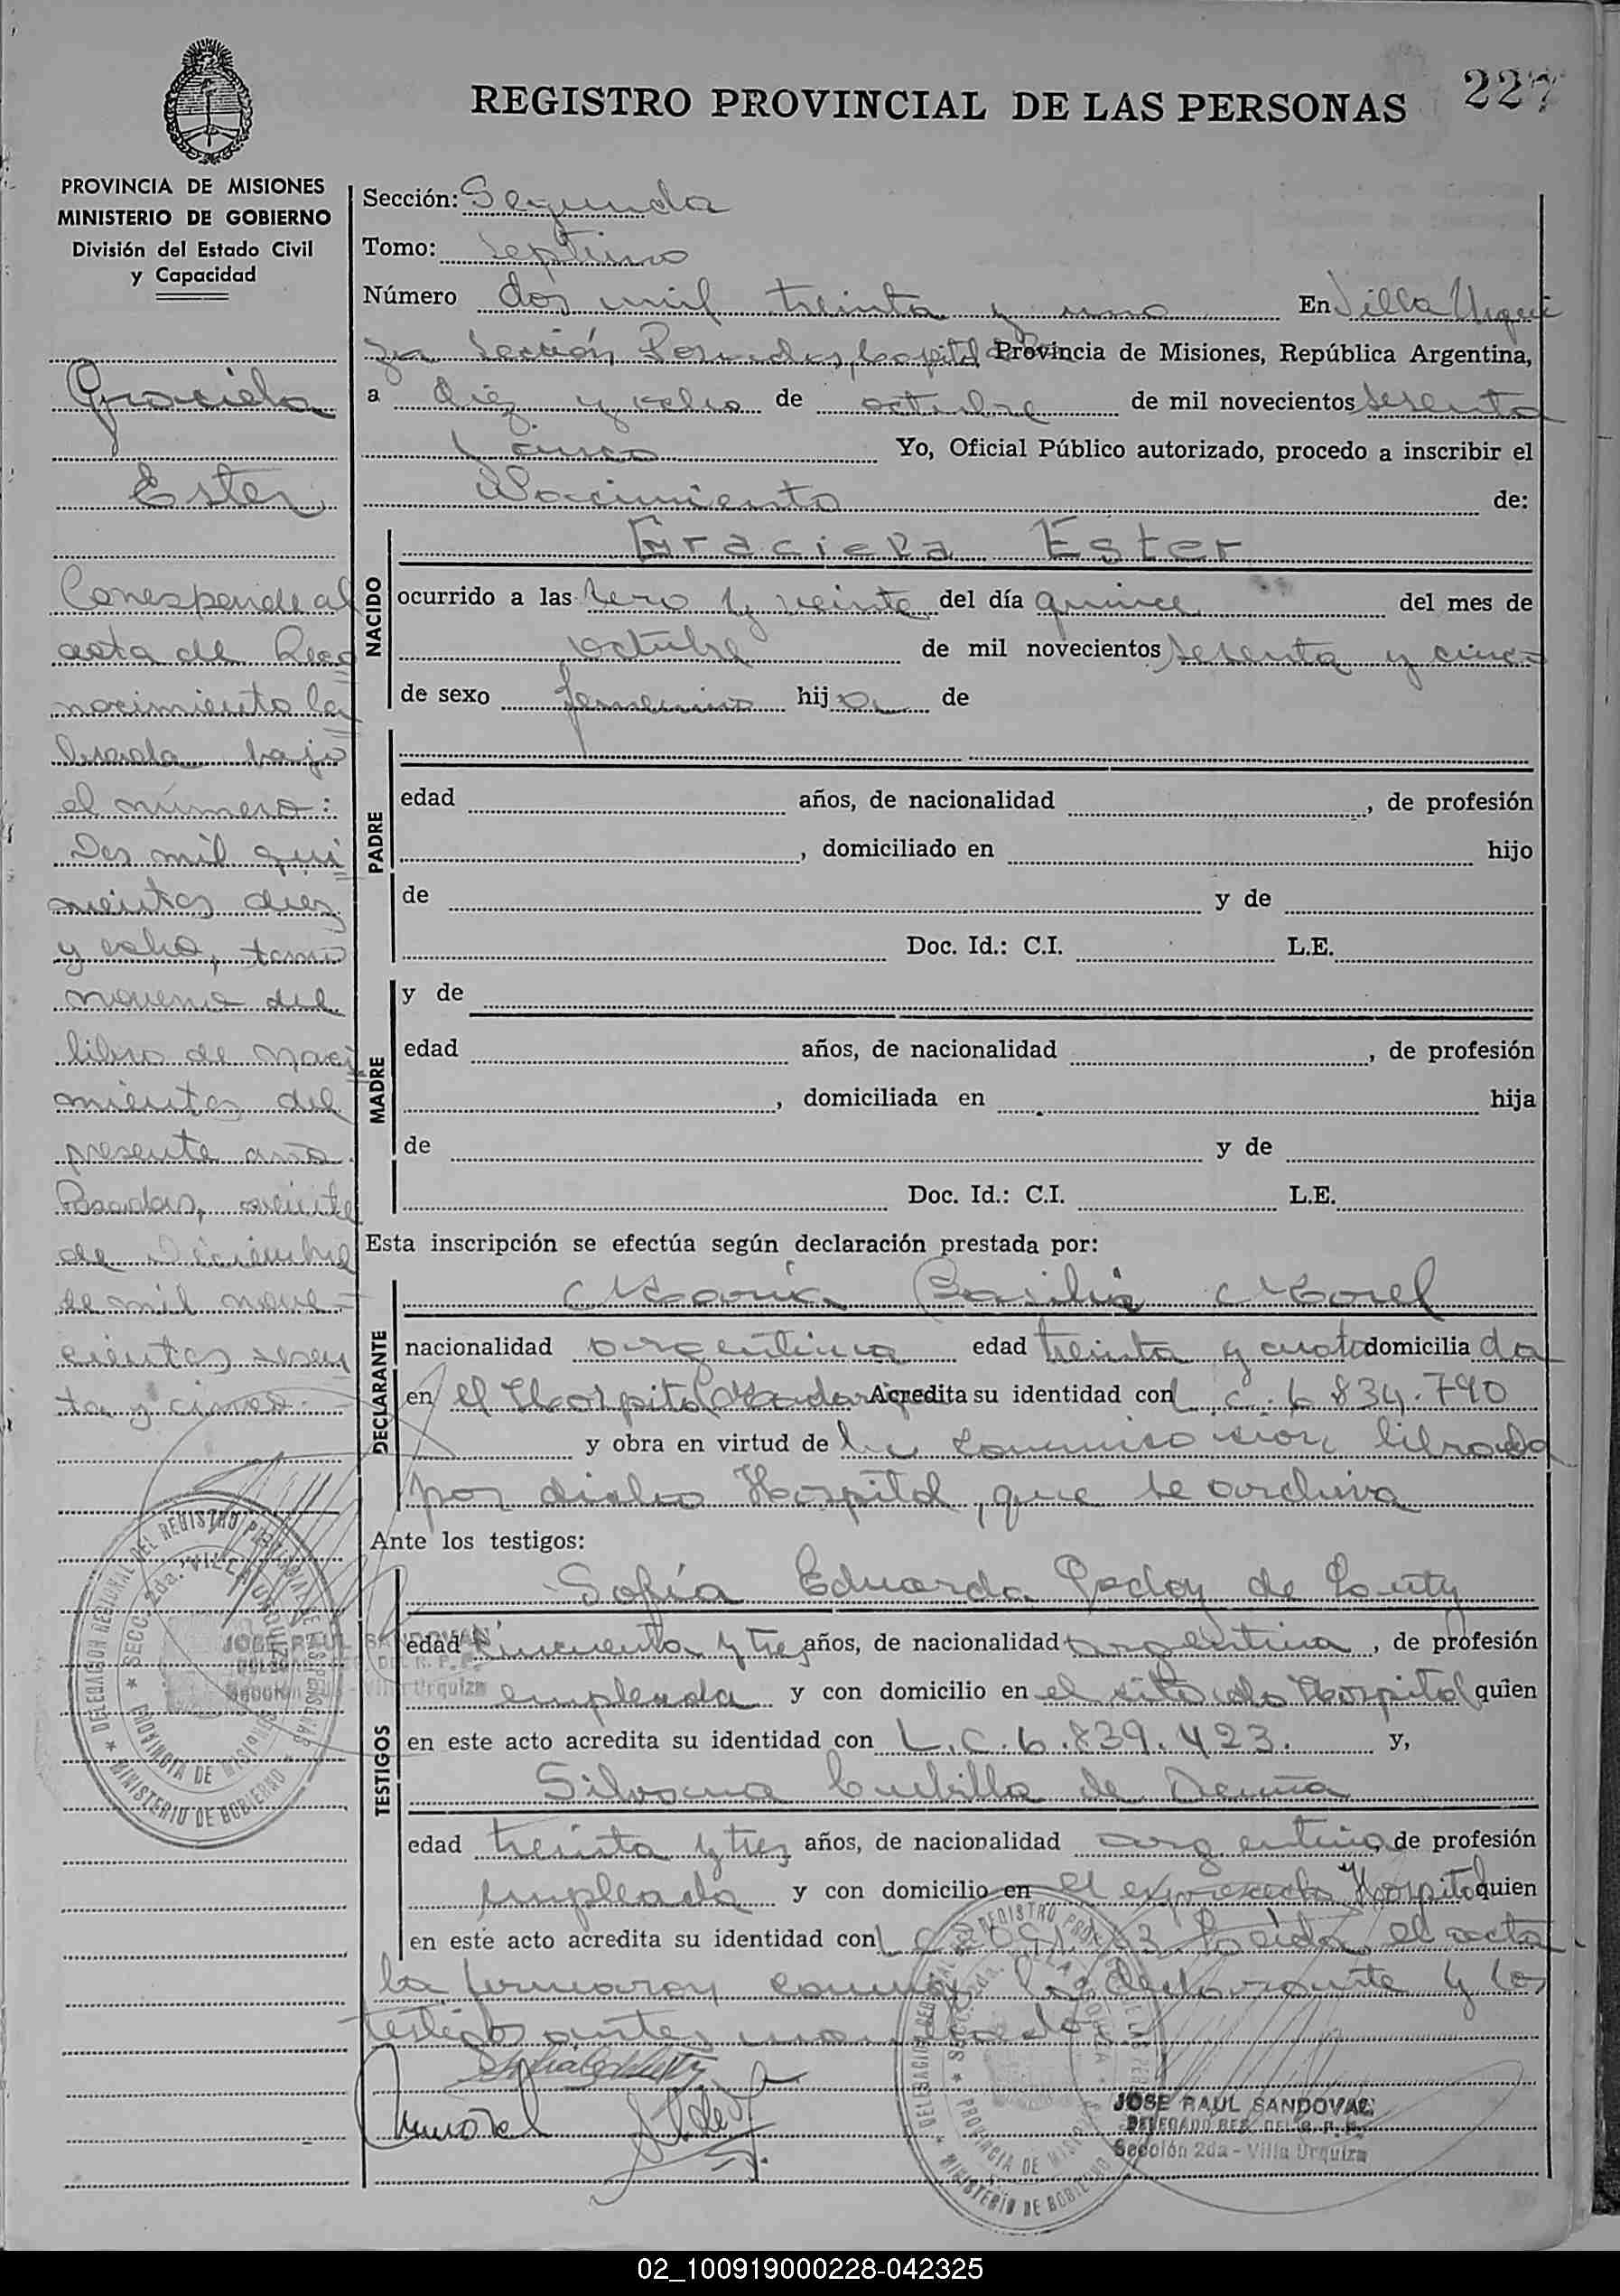 REGISTRO PROVINCIAL DE LAS PERSONAS 227
PROVINCIA DE MISIONES
MINISTERIO DE GOBIERNO
División del Estado Civil
y Capacidad
Graciela
Ester
Corresponde al
acta de Reco
nocimiento la
brada bajo
el número:
Dos mil qui
nientos diez
y ocho, tomo
noveno del
libro de naci
mientos del
presente año.
Posadas, veinte
de Diciembre
de mil nove-
cientos sesen
ta y cinco.-
Sección: Segunda
Tomo: Septimo
Número dos mil treinta y uno En Villa Urqui
za Sección Posadas, Capital Provincia de Misiones, República Argentina,
a diez y ocho de octubre de mil novecientos sesenta
y cinco Yo, Oficial Público autorizado, procedo a inscribir el
Nacimiento de:
NACIDO
Graciela Ester
ocurrido a las cero y veinte del día quince del mes de
octubre de mil novecientos sesenta y cinco
de sexo femenino hija de
PADRE
edad años, de nacionalidad , de profesión
, domiciliado en hijo
de y de
Doc. Id.: C.I. L.E.
MADRE
y de
edad años, de nacionalidad , de profesión
, domiciliada en hija
de y de
Doc. Id.: C.I. L.E.
Esta inscripción se efectúa según declaración prestada por:
DECLARANTE
María Basilia Morel
nacionalidad argentina edad treinta y cuatro domicilia da
en el Hospital Madariaga Acredita su identidad con L.C. 6.834.790
y obra en virtud de la comunicación librada
por dicho Hospital, que se archiva
Ante los testigos:
TESTIGOS
Sofía Eduarda Godoy de Louty
edad cincuenta y tres años, de nacionalidad argentina, de profesión
empleada y con domicilio en el citado Hospital quien
en este acto acredita su identidad con L.C. 6.839.423. y,
Silvana Cubilla de Acuña
edad treinta y tres años, de nacionalidad argentina, de profesión
empleada y con domicilio en el expresado Hospital quien
en este acto acredita su identidad con L Leída el acta
la firmaron conmigo la declarante y los
testigos antes mencionados
JOSE RAUL SANDOVAL
DELEGADO REG. DEL R. P. P.
Sección 2da - Villa Urquiza
DELEGACION REGIONAL DEL REGISTRO PROVINCIAL DE LAS PERSONAS
SECC. 2da. VILLA URQUIZA
PROVINCIA DE MISIONES
MINISTERIO DE GOBIERNO
JOSE RAUL SANDOVAL
DELEGADO REG. DEL R. P. P.
Sección 2da - Villa Urquiza
02_100919000228-042325